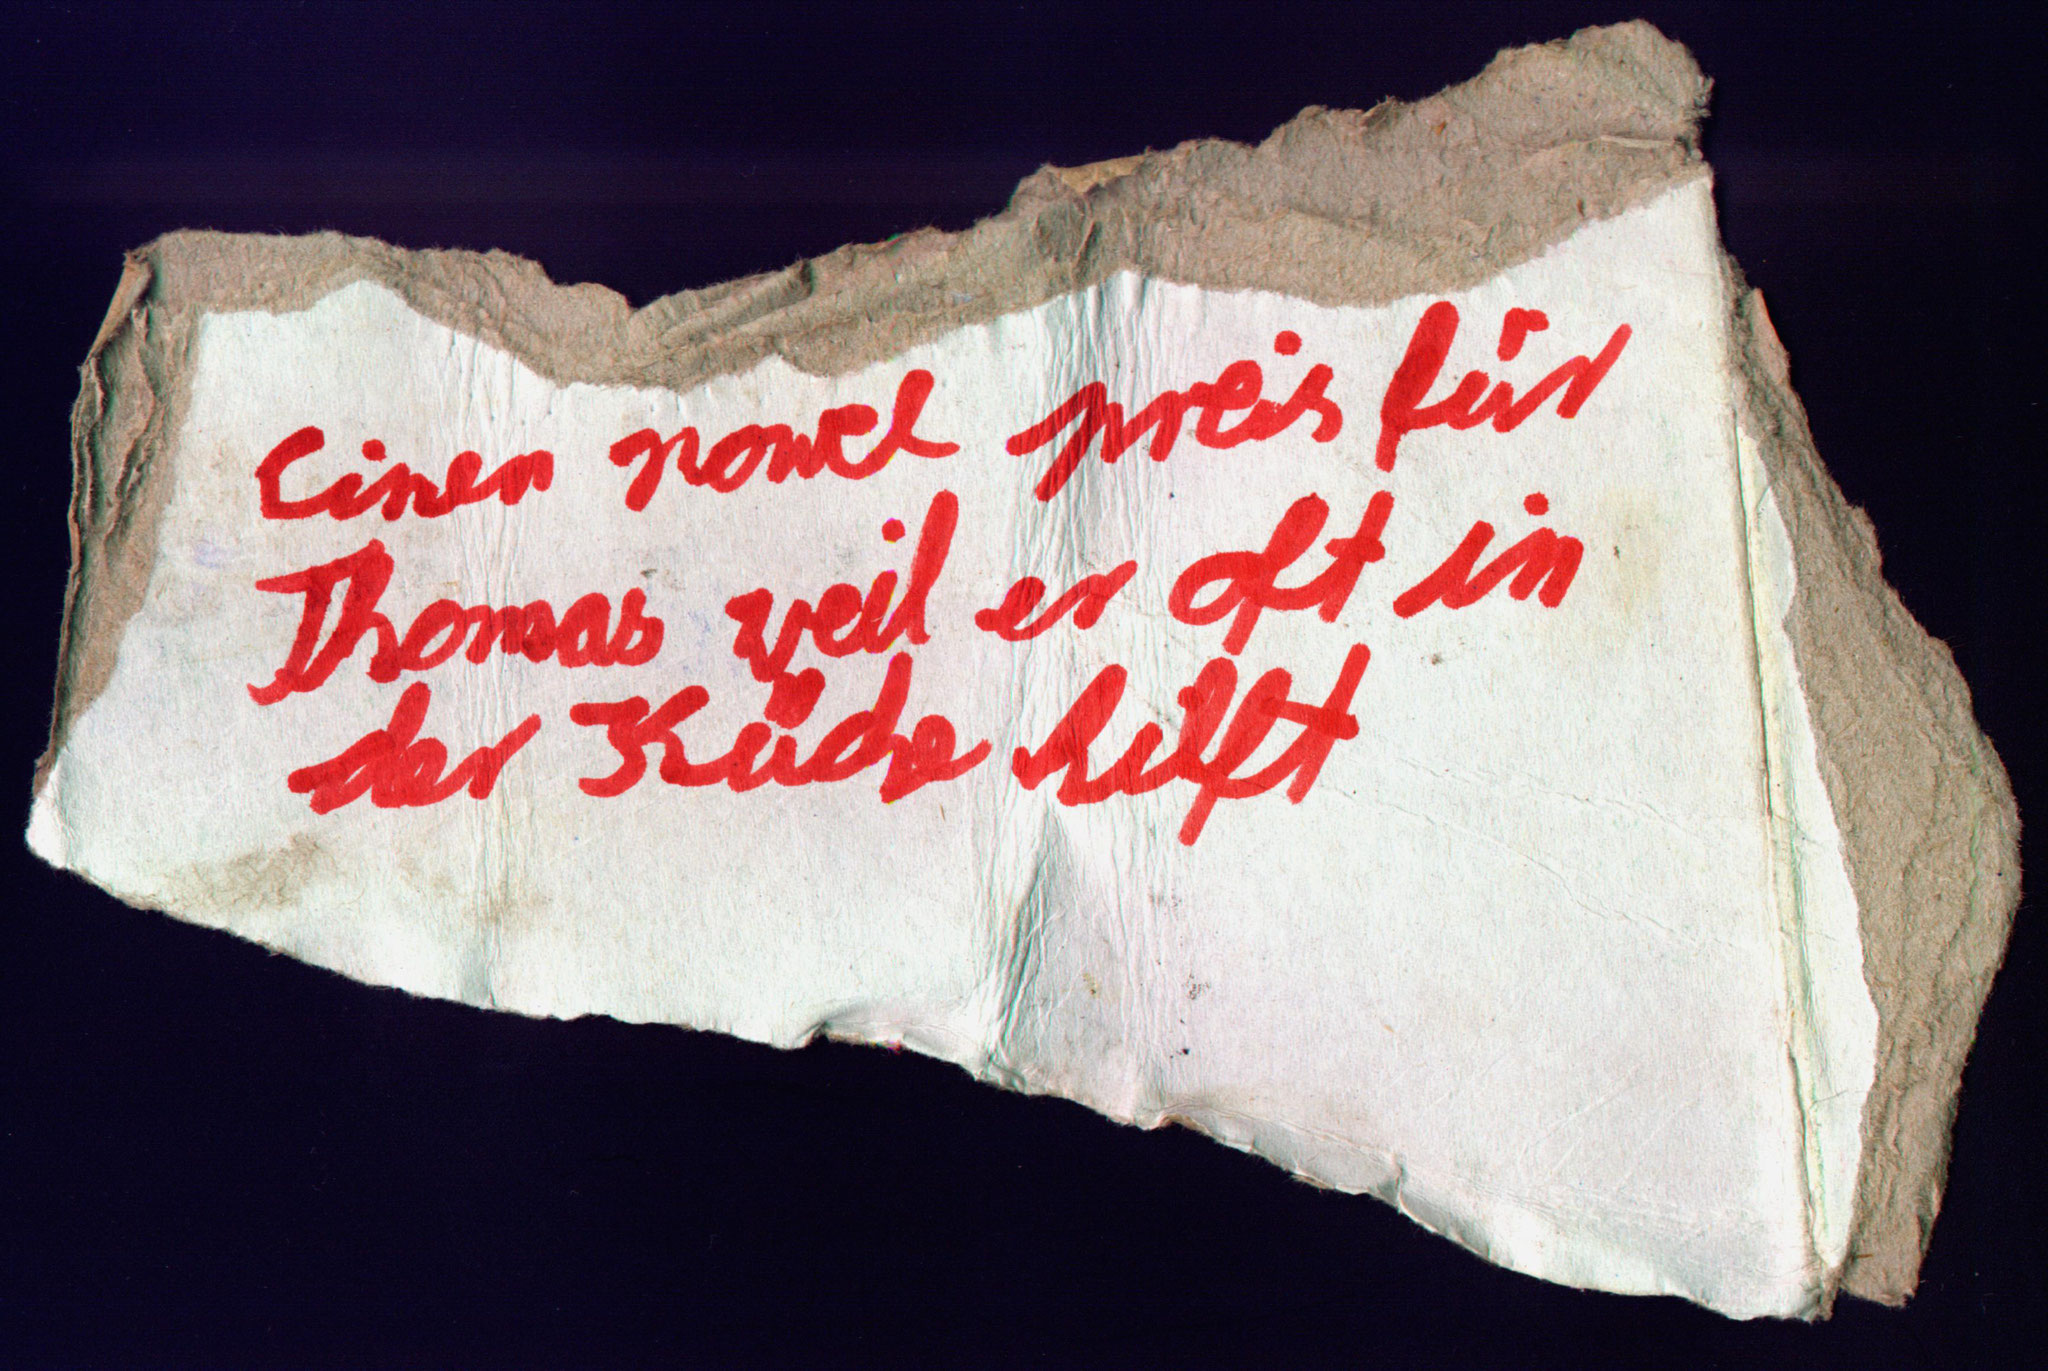 Einen nowel preis für
Thomas weil er oft in
der Küche hilft